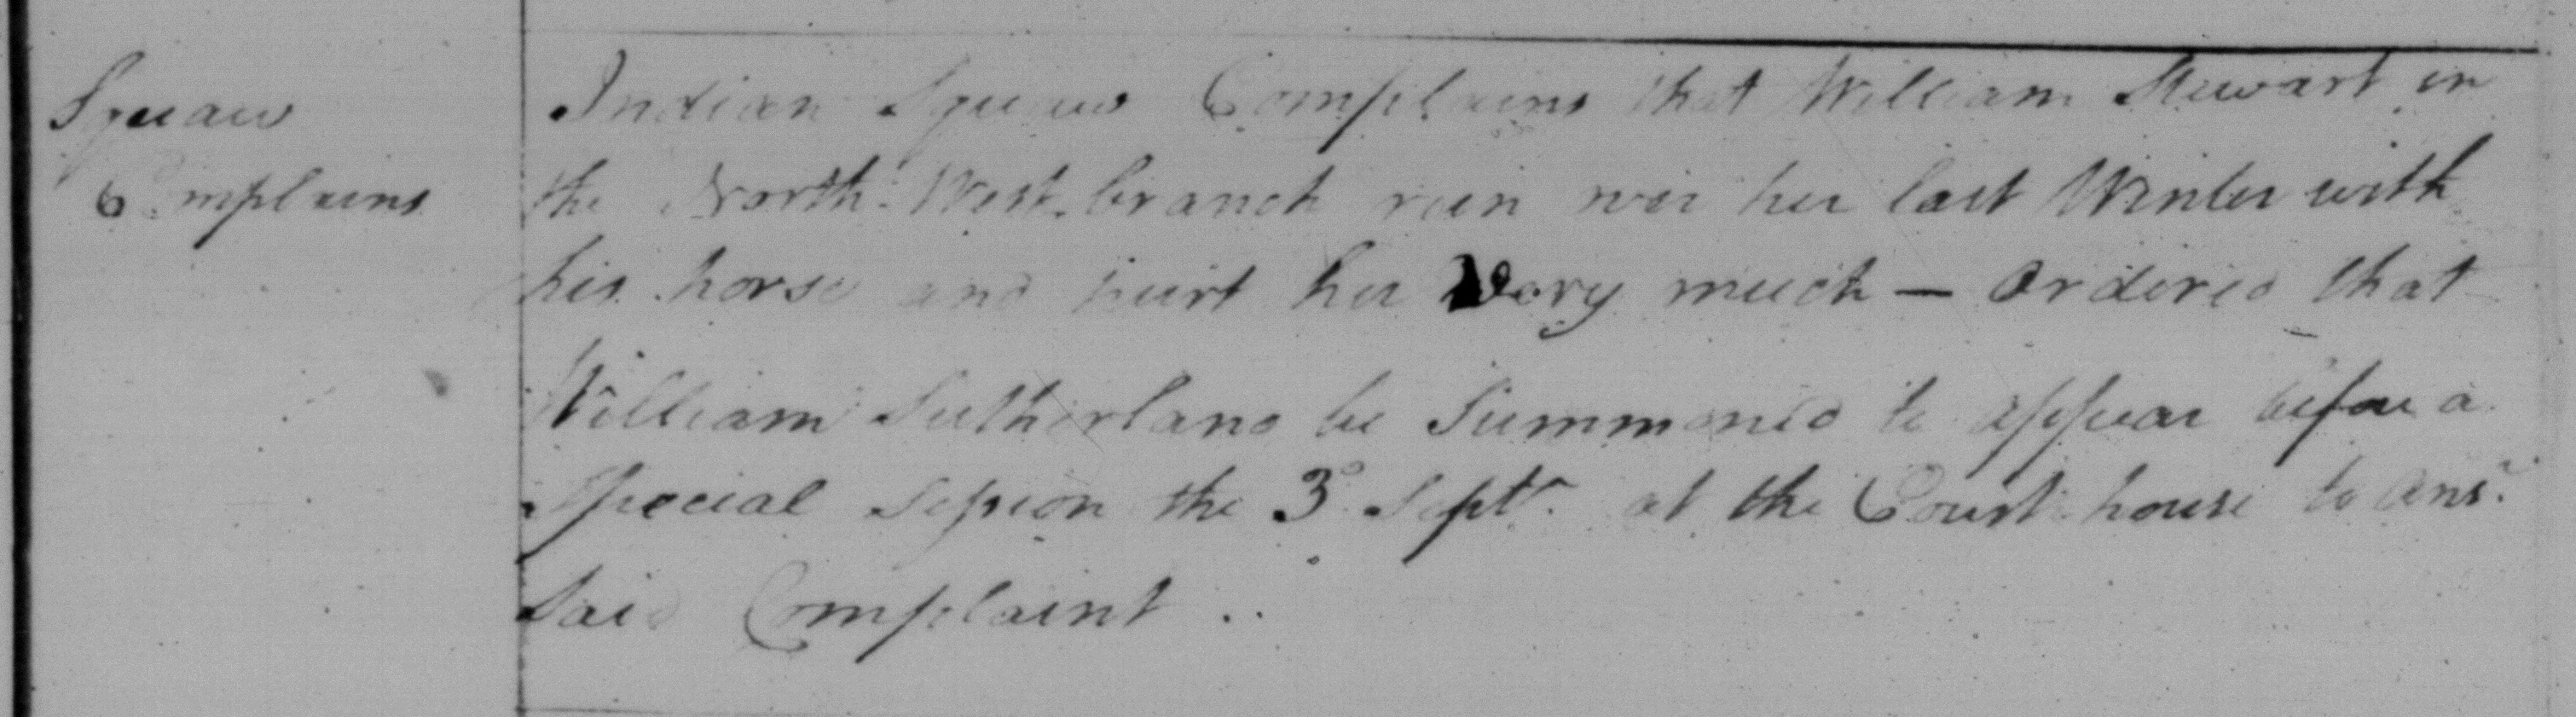 Squaw
Complains
Indian Squaw Complains that William Stewart in
the North West branch run over her last Winter with
his horse and hurt her Very much — Ordered that
William Sutherland be Summoned to appear before a
Special Session the 3d Septr. at the Court house to Ansr.
Said Complaint ..